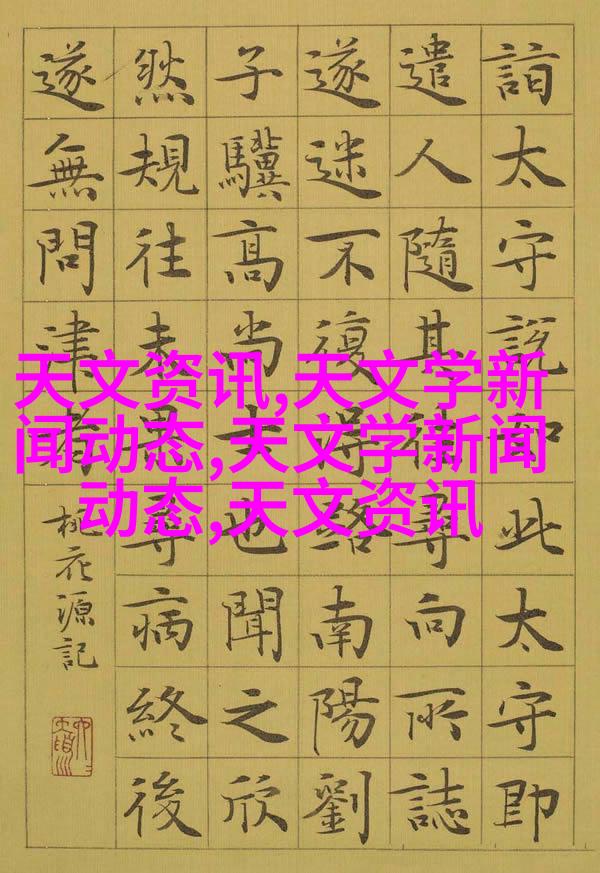 詣太守説如此太守即
遣人隨其往尋向所誌
遂迷不復得路南陽劉
子驥髙尚士也聞之欣
然規往未果尋病終後
遂無問津者
桃花源記
天文资讯,天文学新
闻动态,天文学新闻
动态,天文资讯